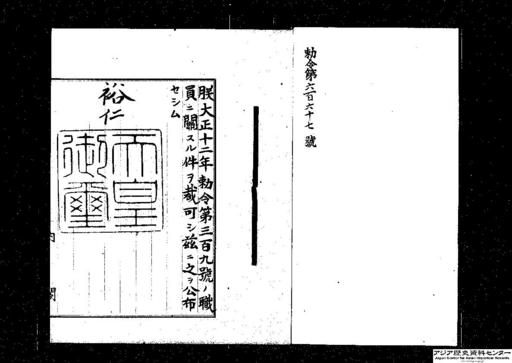 勅令第六百六十七號
朕大正十二年勅令第三百九號ノ職
員ニ關スル件ヲ裁可シ茲ニ之ヲ公布
セシム
裕仁
天皇
御璽
内閣
アジア歴史資料センター
Japan Center for Asian Historical Records